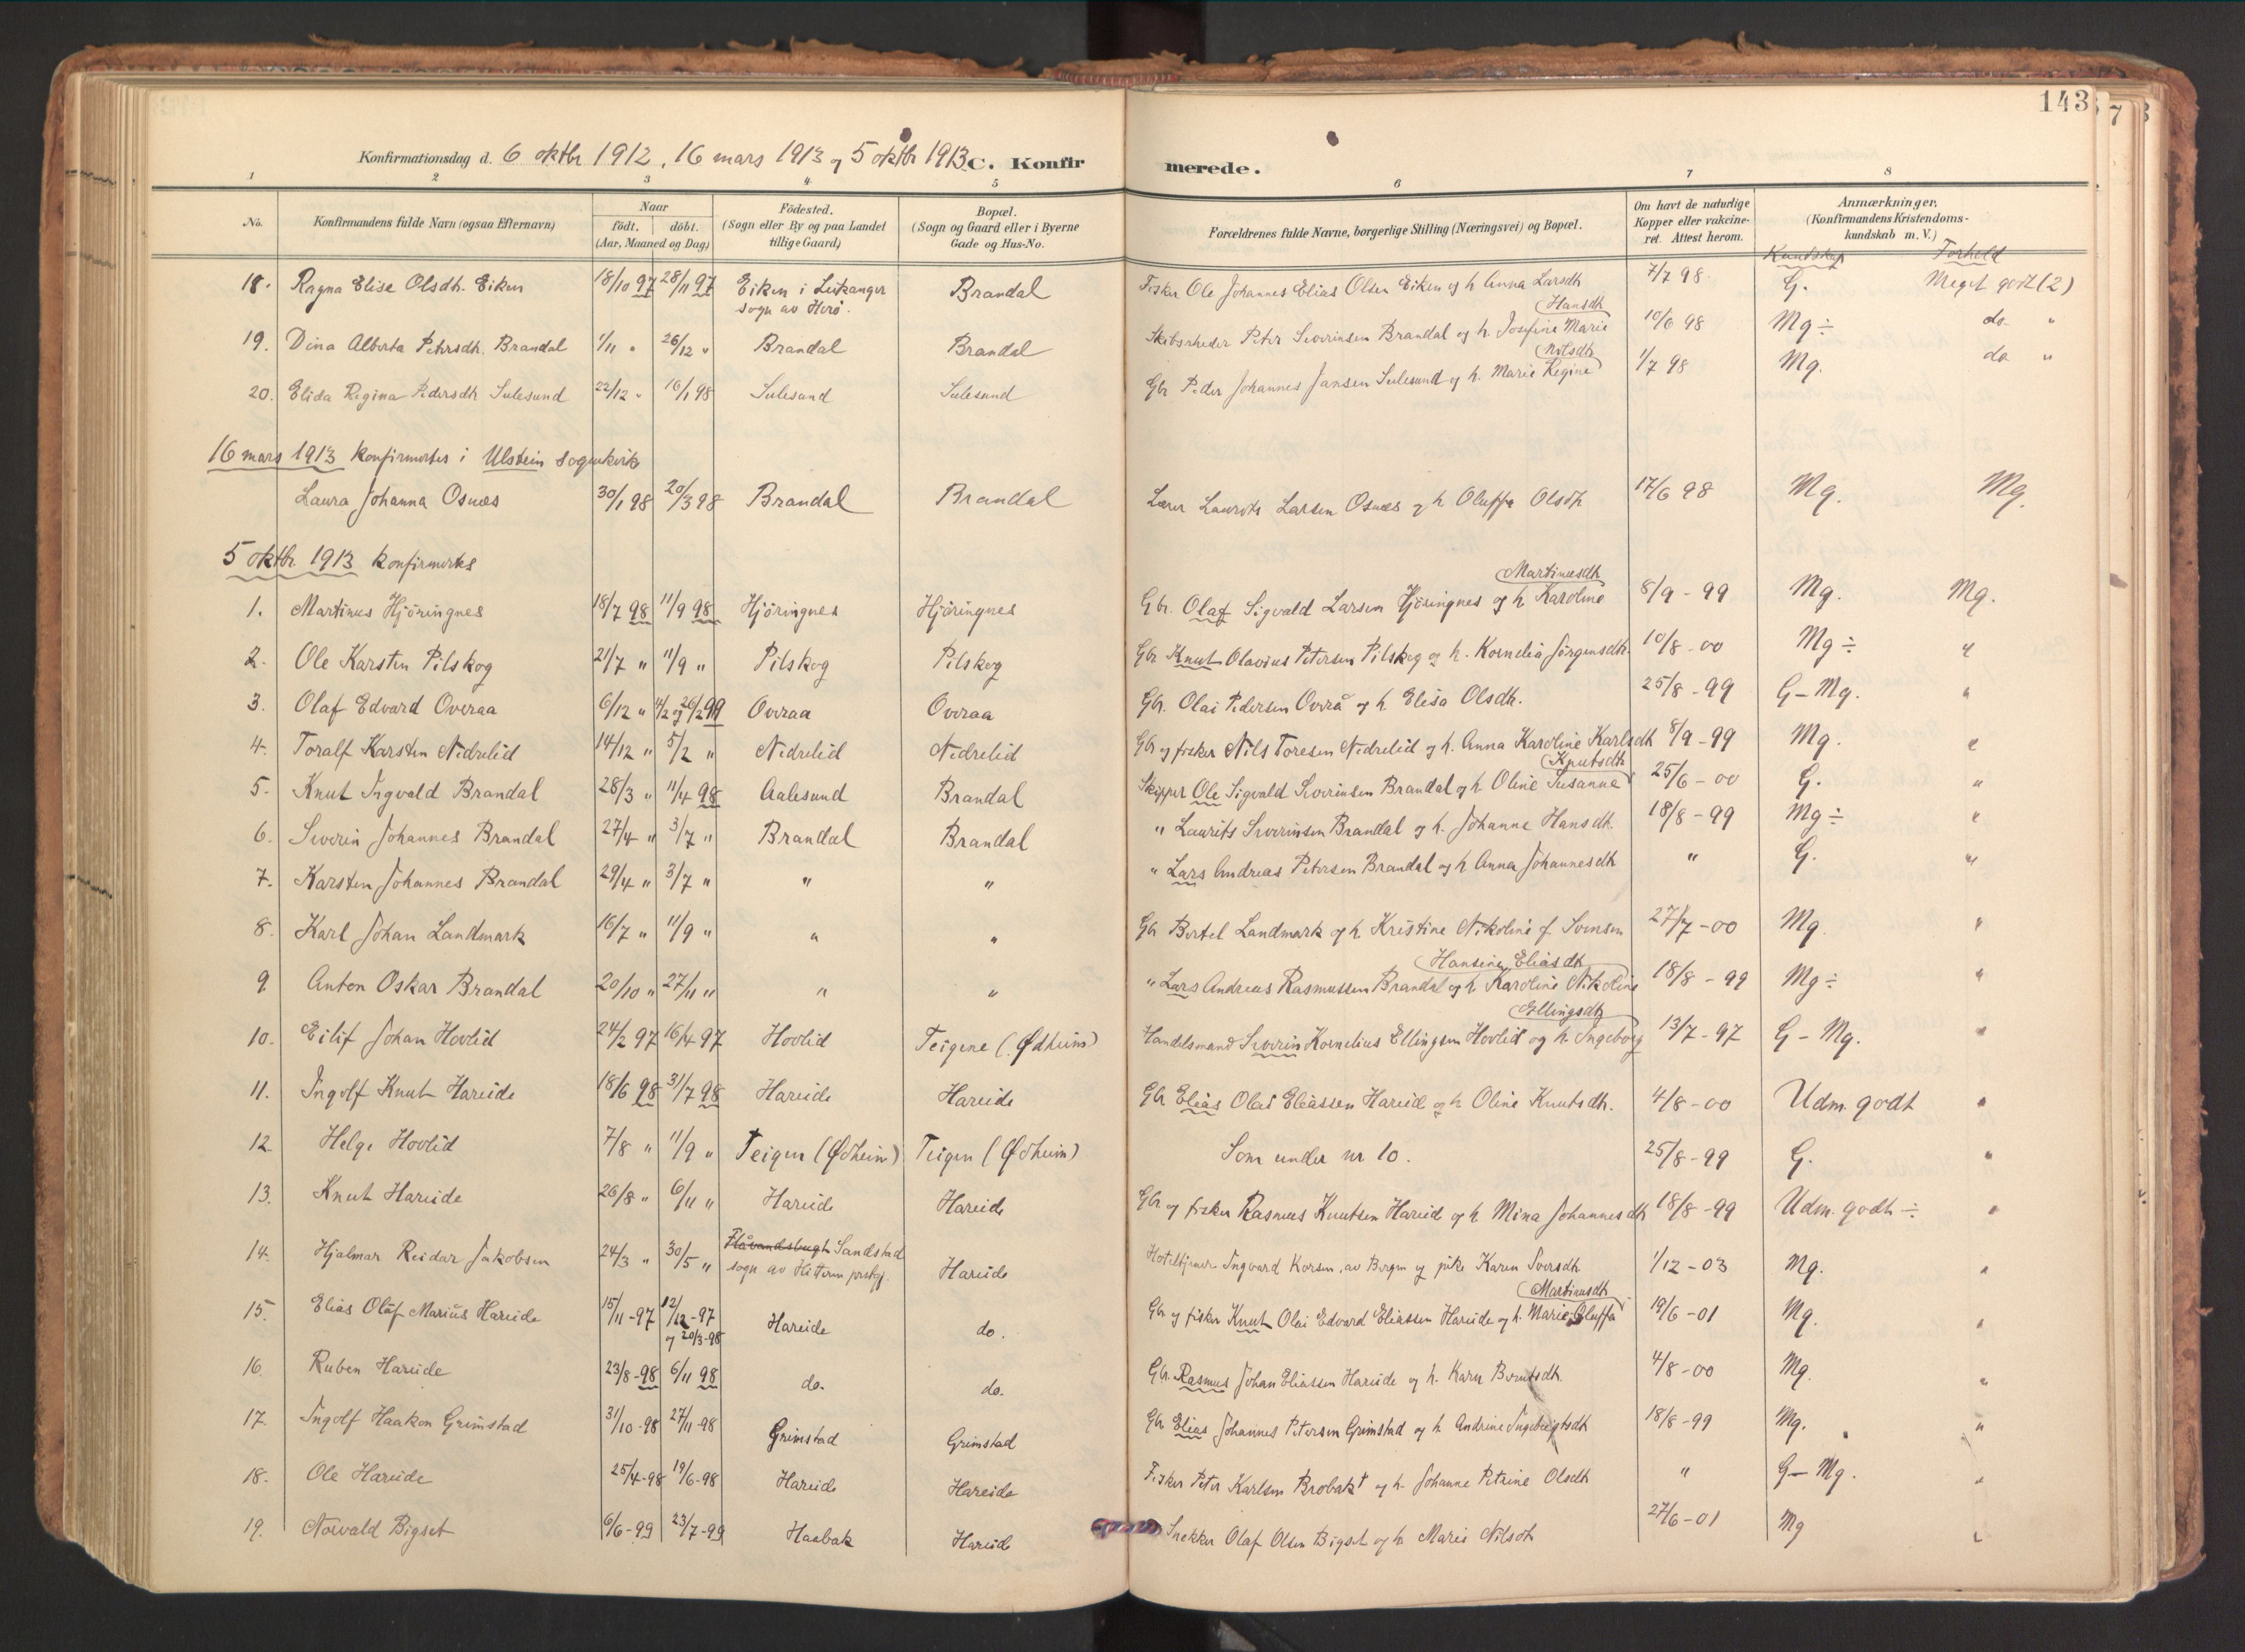 143
Konfirmationsdag d. 6 oktbr 1912, 16 mars 1913 og 5 oktbr 1913 C. Konfirmerede.
1 2 3 4 5 6 7 8
No. Konfirmandens fulde Navn (ogsaa Efternavn) Naar födt. döbt. (Aar, Maaned og Dag) Födested. (Sogn eller By og paa Landet tillige Gaard) Bopæl. (Sogn og Gaard eller i Byerne Gade og Hus-No. Forældrenes fulde Navne, borgerlige Stilling (Næringsvei) og Bopæl. Om havt de naturlige Kopper eller vakcineret. Attest herom. Anmærkninger. (Konfirmandens Kristendomskundskab m. V.)
Kundskap Forhold
18. Ragna Elise Olsdh. Eiken 18/10 97 28/11 97 Eiken i Leikanger sogn av Herö. Brandal Fisker Ole Johannes Elias Olsen Eiken og h. Anna Larsdh 7/7 98. G. Meget godt (2)
19. Dina Alberta Petersdh. Brandal 1/11 " 26/12 " Brandal Brandal Skibsrheder Peter Severinsen Brandal og h. Josefine Marie Hansdh 10/6 98 Mg ÷ do "
20. Elida Regina Pedersdh Sulesund 22/12 " 16/1 98 Sulesund Sulesund Gbr Peder Johannes Jansen Sulesund og h. Marie Regine Nilsdh 1/7 98 Mg. do "
16 mars 1913 konfirmertes i Ulstein sognekirke
Laura Johanna Osnes 30/1 98 20/3 98 Brandal Brandal Lærer Laurits Larsen Osnes og h Oluffa Olsdh 17/6 98 Mg. Mg.
5 oktbr. 1913 konfirmertes
1. Martinus Hjöringnes 18/7 98 11/9 98 Hjöringnes Hjöringnes Gbr. Olaf Sigvald Larsen Hjöringnes og h Karoline Martinusdh 8/9 - 99 Mg. Mg.
2. Ole Karsten Pilskog 21/7 " 11/9 " Pilskog Pilskog Gbr Knut Olavius Petersen Pilskog og h. Kornelia Jörgensdh. 10/8 - 00 Mg ÷ "
3. Olaf Edvard Overaa 6/12 " 4/2 og 26/2 99 Overaa Overaa Gbr. Olai Pedersen Overå og h Elisa Olsdh. 25/8 - 99 G - Mg. "
4. Toralf Karsten Nedrelid 14/12 " 5/2 " Nedrelid Nedrelid Gbr og fisker Nils Toresen Nedrelid og h. Anna Karoline Karlsdh 8/9 - 99 Mg. "
5. Knut Ingvald Brandal 28/3 " 11/4 98 Aalesund Brandal Skipper Ole Sigvald Severinsen Brandal og h Oline Susanne Knutsdh 25/6 - 00 G. "
6. Severin Johannes Brandal 27/4 " 3/7 " Brandal Brandal " Laurits Severinsen Brandal og h. Johanne Hansdh. 18/8 - 99 Mg ÷ "
7. Karsten Johannes Brandal 29/4 " 3/7 " " " " Lars Andreas Petersen Brandal og h Anna Johannesdh " G. "
8. Karl Johan Landmark 16/7 " 11/9 " " " Gbr Bertel Landmark og h. Kristine Nikoline f. Svensen 27/7 - 00 Mg. "
9 Anton Oskar Brandal 20/10 " 27/11 " " " " Lars Andreas Rasmussen Brandal og h. Karoline Nikoline Hansine Eliasdh 18/8 - 99 Mg ÷ "
10. Eilif Johan Hovlid 24/2 97 16/4 97 Hovlid Teigene (Ødheim) Handelsmand Severin Kornelius Ellingsen Hovlid og h. Ingeborg Ellingsdh 13/7 - 97 G - Mg. "
11. Ingolf Knut Hareide 18/6 98 31/7 98 Hareide Hareide Gbr Elias Olai Eliassen Hareid og h Oline Knutsdh. 4/8 - 00 Udm. godt "
12. Helge Hovlid 7/8 " 11/9 " Teigen (Ødheim) Teigen (Ødheim) Som under nr 10. 25/8 - 99 G. "
13. Knut Hareide 26/8 " 6/11 " Hareide Hareide Gbr og fisker Rasmus Knutsen Hareid og h Mina Johannesdh 18/8 - 99 Udm. godt ÷ "
14. Hjalmar Reidar Jakobsen 24/3 " 30/5 " Flåvandsbugt Sandstad sogn av Hitteren prstgj. Hareide Ingvard Korsen, av Bergen og pike Karen Sversdh 1/12 - 03 Mg. "
15. Elias Olaf Marius Hareide 15/11 - 97 12/12 - 97 og 20/3 - 98 Hareide do. Gbr og fisker Knut Olai Edvard Eliassen Hareide og h. Marie Oluffa Martinusdh 19/6 - 01 Mg. "
16. Ruben Hareide 23/8 - 98 6/11 98 do. do. Gbr. Rasmus Johan Eliassen Hareide og h. Karn Berntsdh. 4/8 - 00 Mg. "
17. Ingolf Haakon Grimstad 31/10 - 98 27/11 - 98 Grimstad Grimstad Gbr Elias Johannes Petersen Grimstad og h Andrine Ingebrigtsdh 18/8 - 99 Mg. "
18. Ole Hareide 25/4 - 98 19/6 - 98 Hareide Hareide Fisker Peter Karlsen Brobakk og h. Johanne Petrine Olsdh " G - Mg. "
19. Norvald Bigset 6/6 - 99 23/7 - 99 Haabak Hareid Snekker Olaf Olsen Bigset og h. Marie Nilsdh 27/6 - 01 Mg "